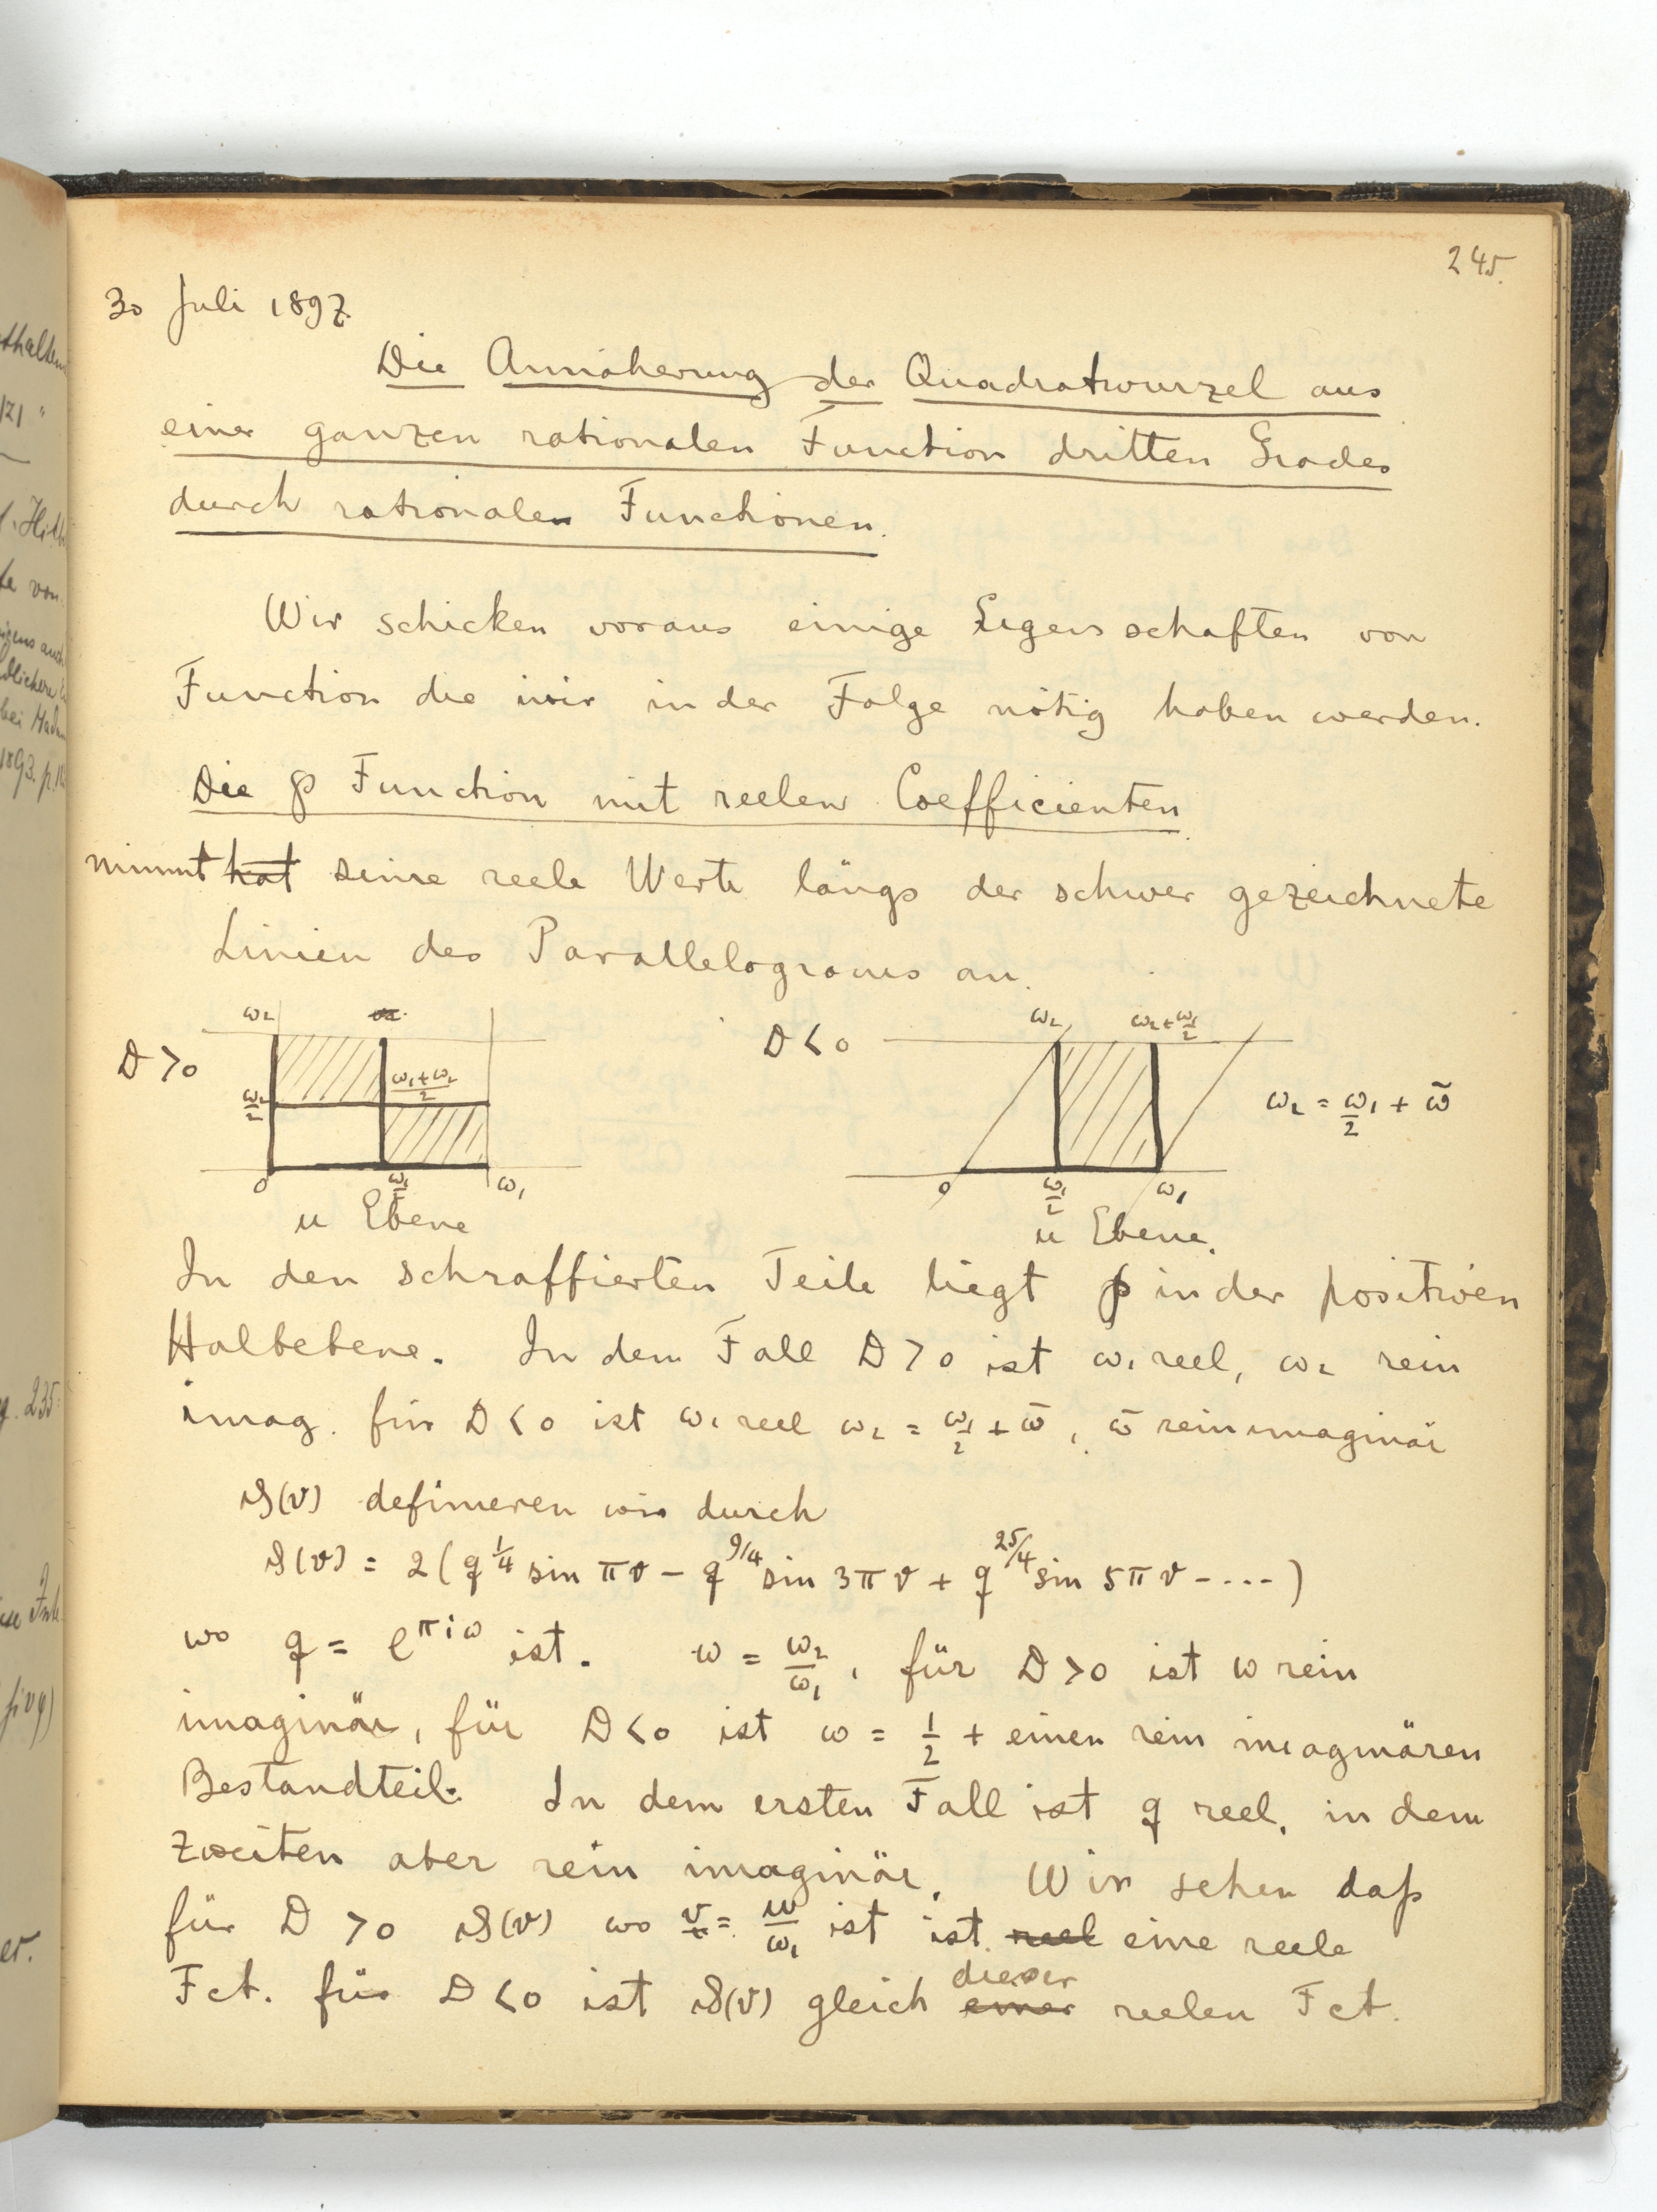 245.
30 Juli 1897.
Die Annäherung der Quadratwurzel aus
einer ganzen rationalen Function dritten Grades
durch rationalen Functionen.
Wir schicken voraus einige Eigenschaften von
Function die wir in der Folge nötig haben werden.
Die ℘ Function mit reelen Coefficienten
nimmt hat seine reele Werte längs der schwer gezeichnete
Linien des Parallelograms an.
D > 0
ω₂
ω₂/2
(ω₁+ω₂)/2
0
ω₁/2
ω₁
u Ebene
D < 0
ω₂
ω₂+ω₁/2
0
ω₁/2
ω₁
u Ebene.
ω₂ = ω₁/2 + ω̃
In den schraffierten Teile liegt ℘ in der positiven
Halbebene. In dem Fall D > 0 ist ω₁ reel, ω₂ rein
imag. für D < 0 ist ω₁ reel ω₂ = ω₁/2 + ω̄, ω̄ rein imaginär
ϑ(v) definieren wir durch
ϑ(v) = 2(q^1/4 sin πv − q^9/4 sin 3πv + q^25/4 sin 5πv − ....)
wo q = e^πiω ist. ω = ω₂/ω₁, für D > 0 ist ω rein
imaginär, für D < 0 ist ω = 1/2 + einen rein imaginären
Bestandteil. In dem ersten Fall ist q reel, in dem
zweiten aber rein imaginär. Wir sehen daß
für D > 0 ϑ(v) wo v = u/ω₁ ist ist reel eine reele
Fct. für D < 0 ist ϑ(v) gleich einer dieser reelen Fct.